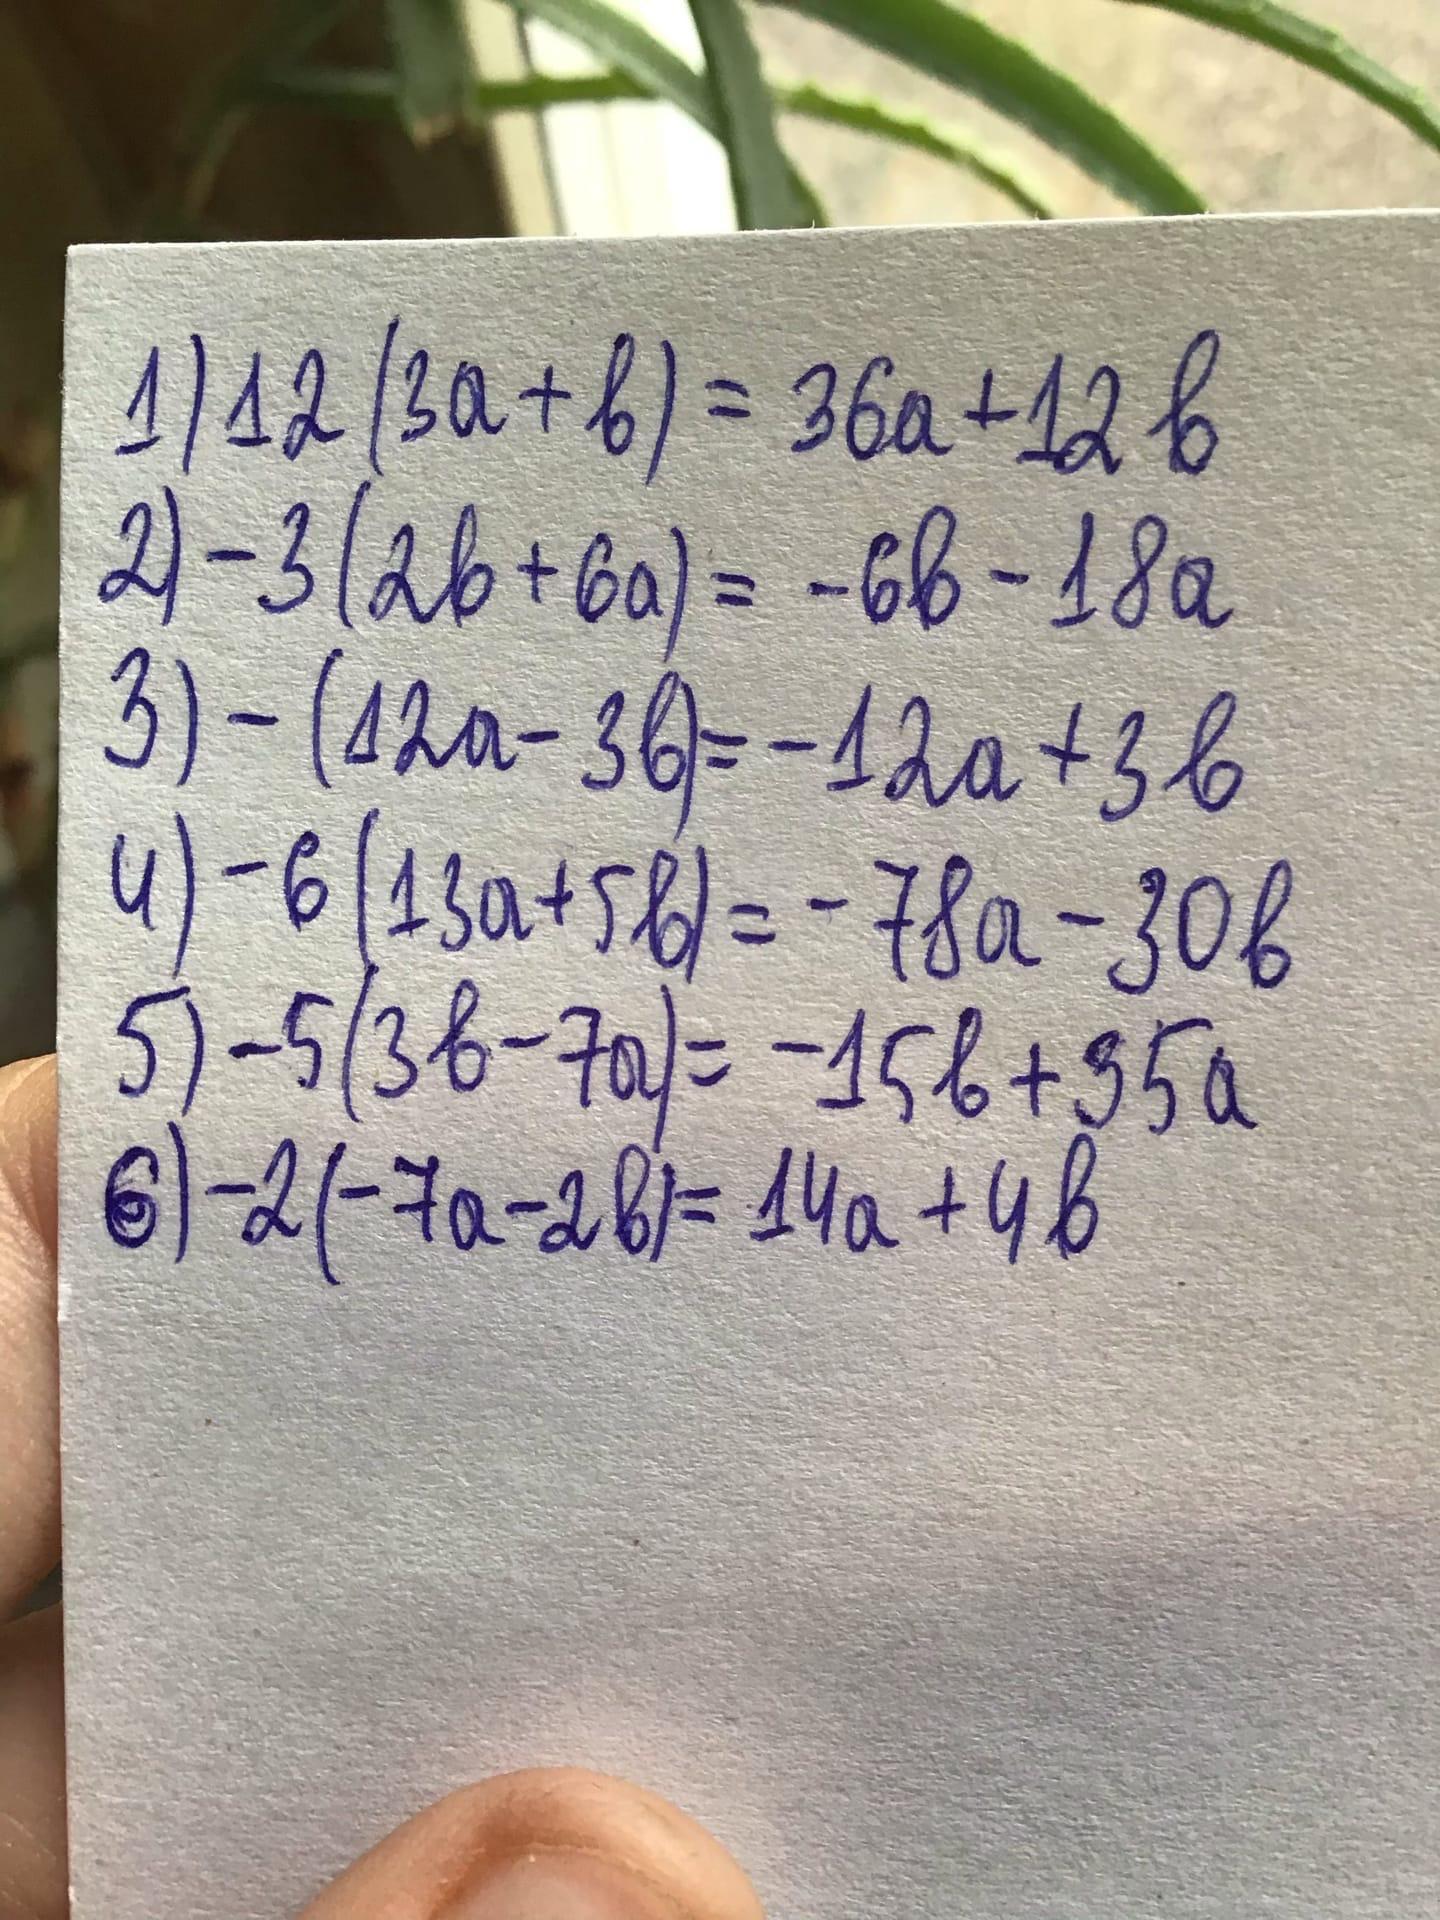 1) 12(3a+b) = 36a+12b
2) -3(2b+6a) = -6b-18a
3) -(12a-3b) = -12a+3b
4) -6(13a+5b) = -78a-30b
5) -5(3b-7a) = -15b+35a
6) -2(-7a-2b) = 14a+4b